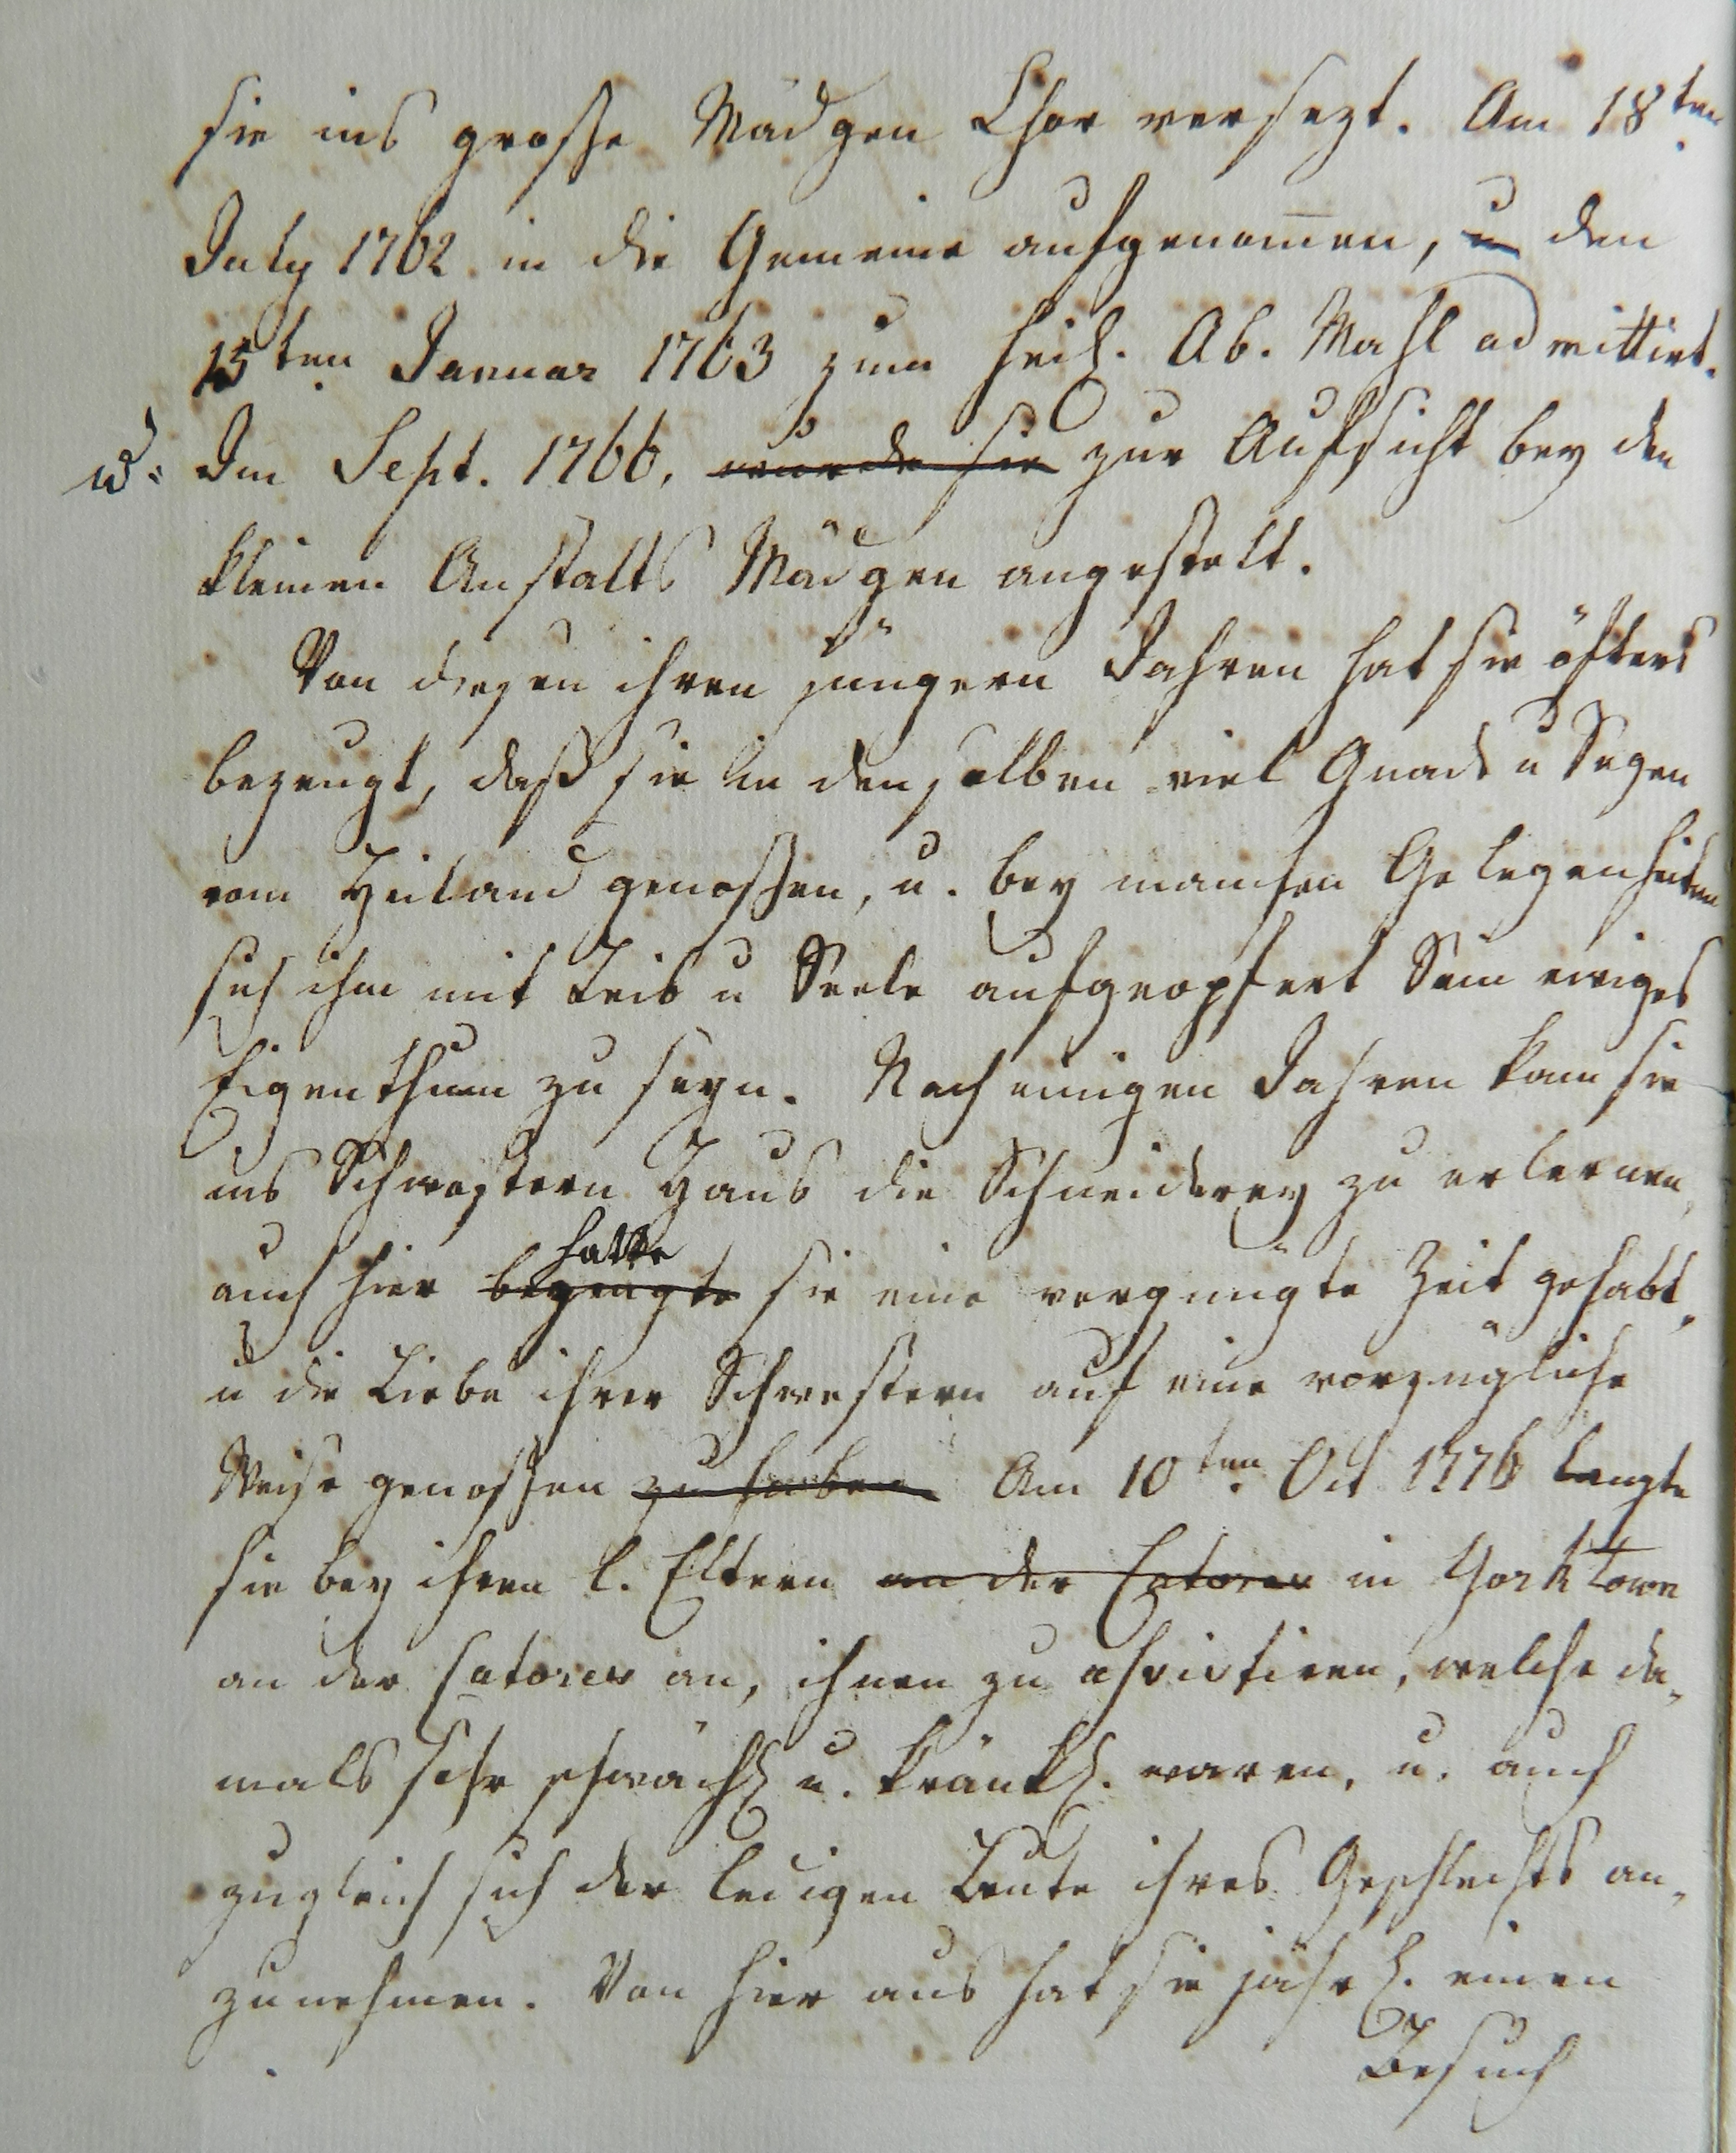 sie ins große Mädgen Chor versezt. Am 18ten
July 1762 in die Gemeine aufgenom̅en, u den
15ten Januar 1763 zum heil. Ab. Mahl admittirt.
u. Im Sept. 1766, wurde sie zur Aufsicht bey den
kleinen Anstalts Mädgen angestelt.
Von diesen ihren jüngern Jahren hat sie öfters
bezeugt, daß sie in denselben viel Gnade u Segen
vom Heiland genoßen, u. bey manchen Gelegenheiten
sich ihm mit Leib u Seele aufgeopfert Sein ewiges
Eigenthum zu seyn. Nach einigen Jahren kam sie
ins Schwestern Haus die Schneiderey zu erlernen,
hatte
auch hier bezeugte sie eine vergnügte Zeit gehabt,
u die Liebe ihrer Schwestern auf eine vorzügliche
Weise genoßen zu haben Am 10ten Oct 1776 langte
sie bey ihren l. Eltern an der Catores in York town
an der Catores an, ihnen zu assistiren, welche da-
mals sehr schwächl u. kränkl. waren, u. auch
zugleich sich der ledigen Leute ihres Geschlechts an-
zunehmen. Von hier aus hat sie jährl. einen
Besuch